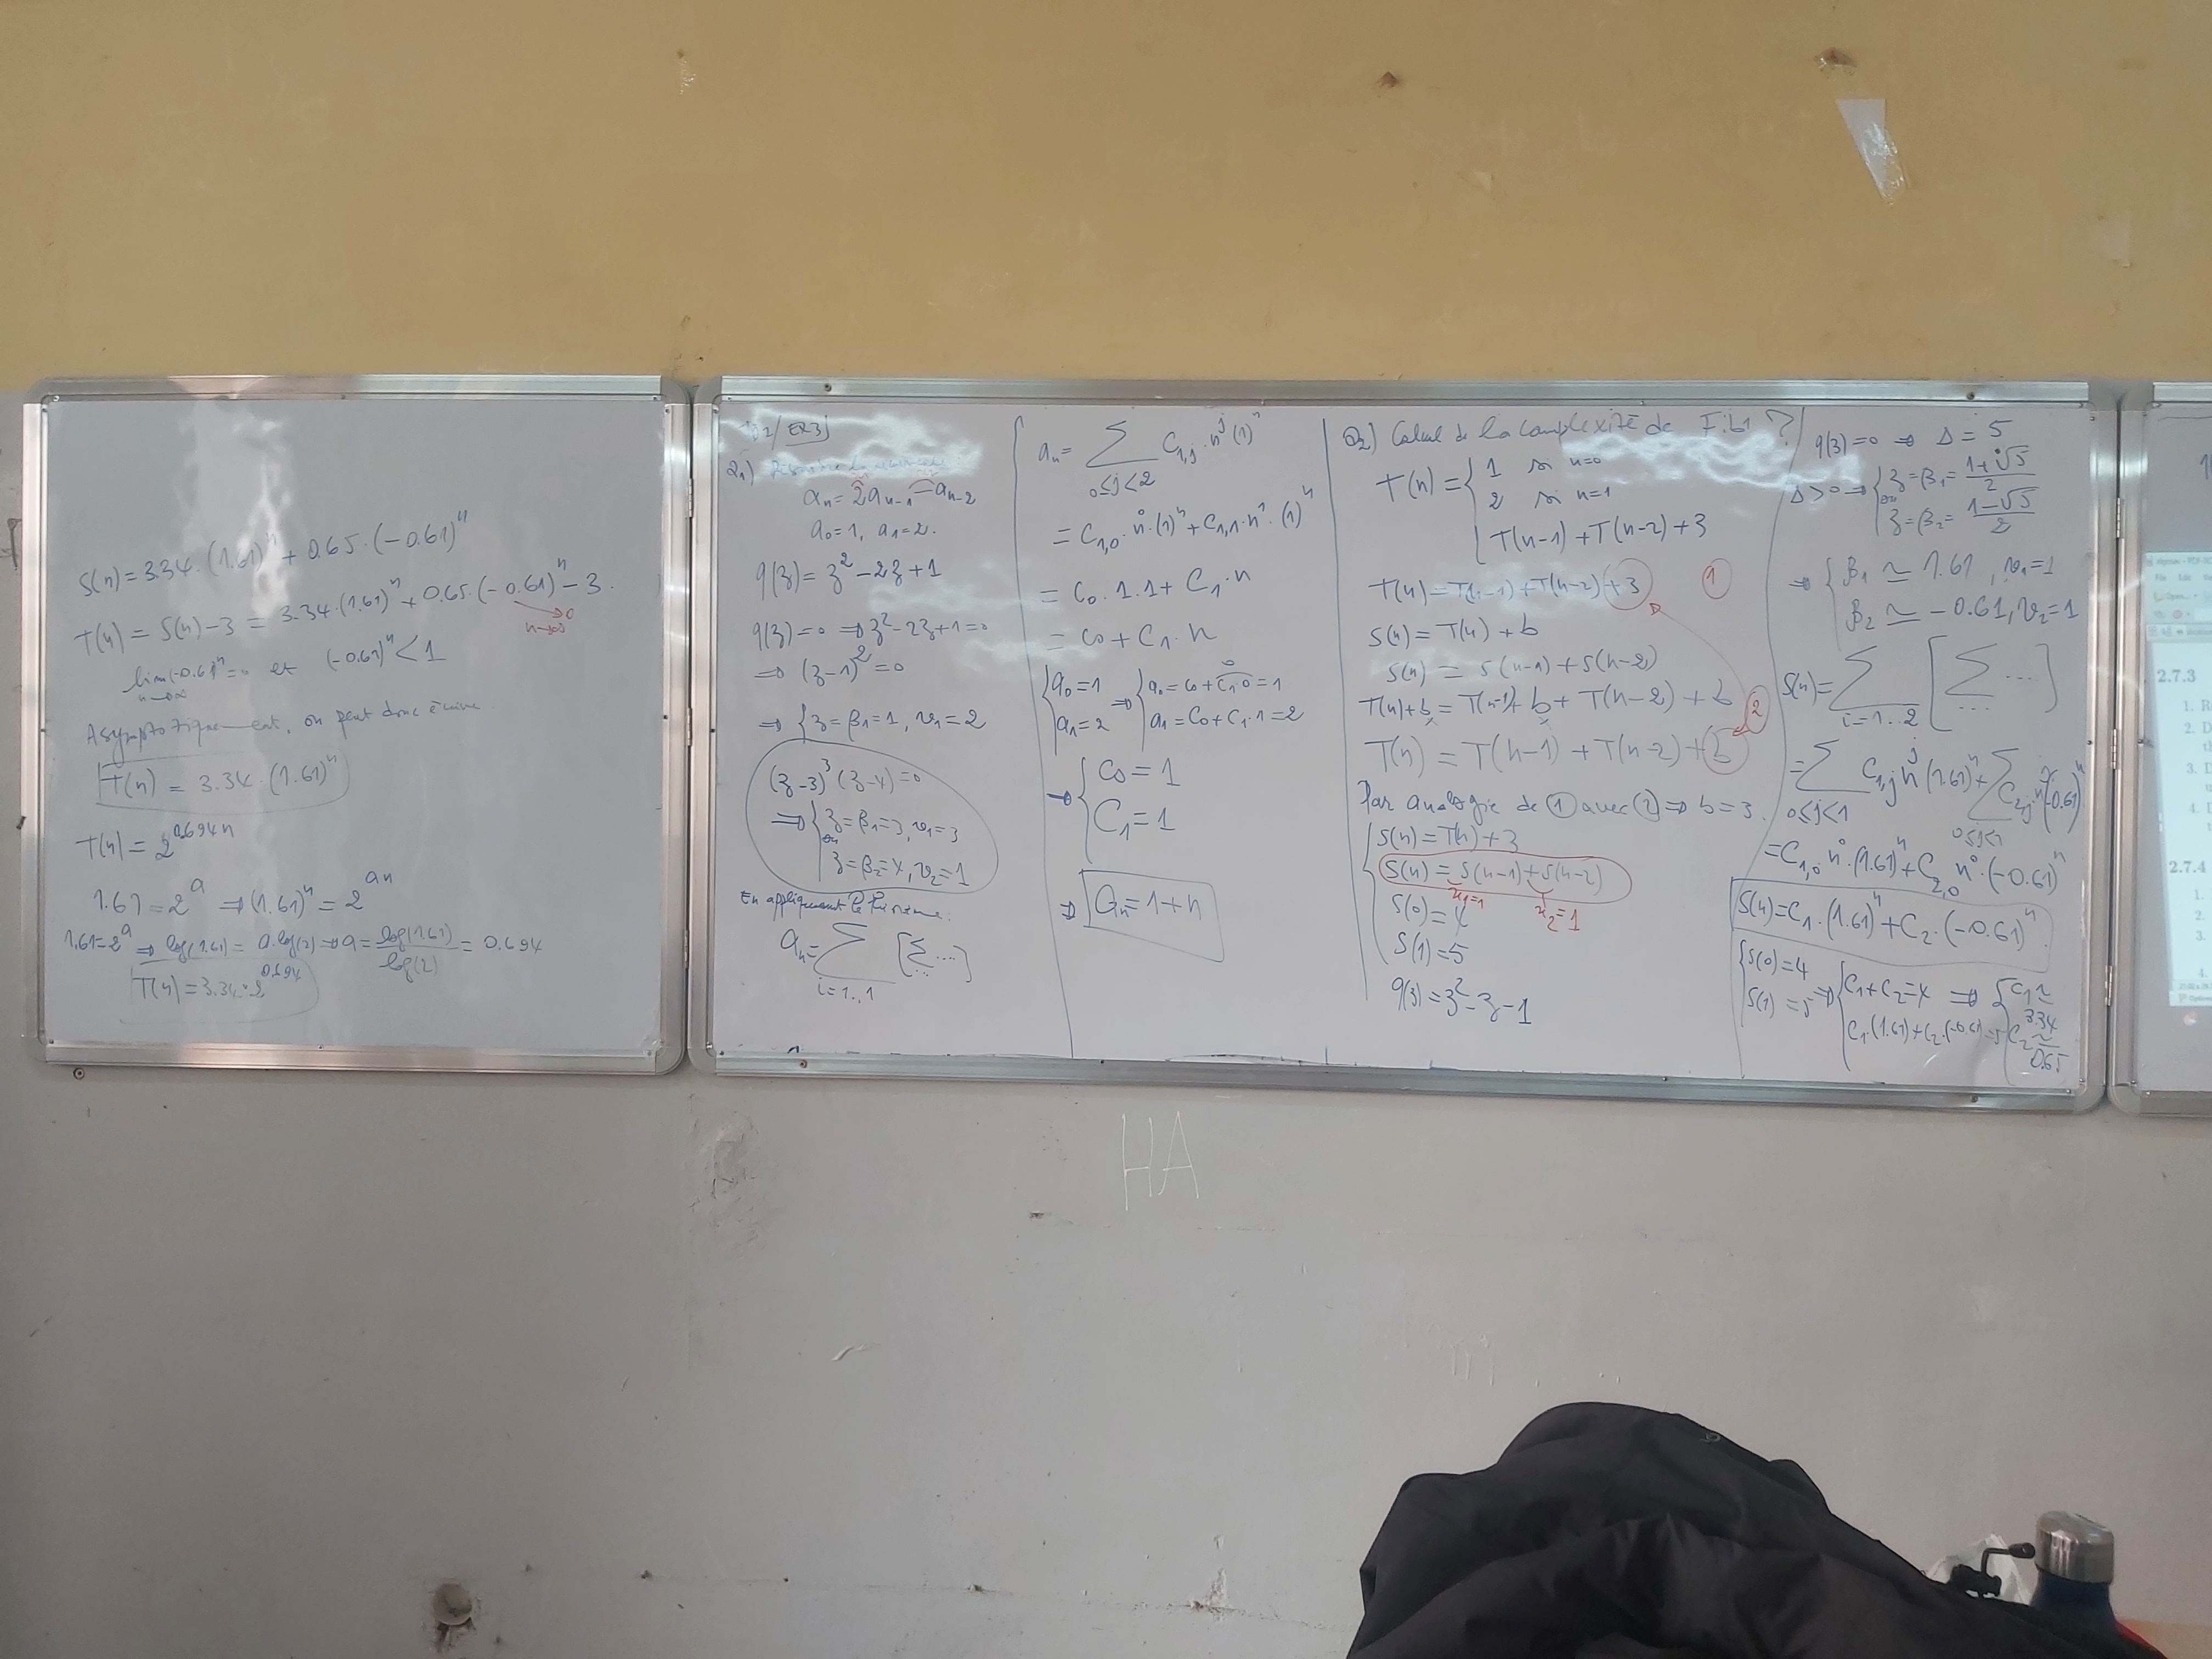 S(n) = 3.34 · (1.61)^n + 0.65 · (-0.61)^n
T(n) = S(n) - 3 = 3.34 · (1.61)^n + 0.65 · (-0.61)^n - 3.
→ 0
n→∞
lim (-0.61)^n = 0 et (-0.61)^n < 1
n→∞
Asymptotiquement, on peut donc écrire
T(n) = 3.34 · (1.61)^n
T(n) = 2^0.694n
1.61 = 2^a ⇒ (1.61)^n = 2^an
1.61 = 2^a ⇒ log(1.61) = a·log(2) ⇒ a = log(1.61)/log(2) = 0.694
T(n) = 3.34 · 2^0.694
/ EX 3
an = 2an-1 - an-2
a0 = 1, a1 = 2.
q(z) = z² - 2z + 1
q(z) = 0 ⇒ z² - 2z + 1 = 0
⇒ (z-1)² = 0
⇒ { z = β1 = 1, v1 = 2
(z-3)³ (z-4) = 0
⇒ { z = β1 = 3, v1 = 3
ou
z = β2 = 4, v2 = 1
En appliquant le théorème.
an = Σ [Σ ....]
i = 1..1
an = Σ C1,j · n^j (1)^n
0≤j<2
= C1,0 · n^0 · (1)^n + C1,1 · n^1 · (1)^n
= C0 · 1 · 1 + C1 · n
= C0 + C1 · n
{ a0 = 1 ⇒ { a0 = C0 + C1·0 = 1
a1 = 2 a1 = C0 + C1·1 = 2
⇒ { C0 = 1
C1 = 1
⇒ an = 1 + n
Q2) Calcul de la complexité de Fib1 ?
T(n) = { 1 si n=0
2 si n=1
T(n-1) + T(n-2) + 3
T(n) = T(n-1) + T(n-2) + 3 1
S(n) = T(n) + b
S(n) = S(n-1) + S(n-2)
T(n) + b = T(n-1) + b + T(n-2) + b
T(n) = T(n-1) + T(n-2) + b 2
Par analogie de 1 avec 2 ⇒ b = 3.
{ S(n) = T(n) + 3
S(n) = S(n-1) + S(n-2)
S(0) = 4
S(1) = 5
q(z) = z² - z - 1
q(z) = 0 ⇒ Δ = 5
Δ > 0 ⇒ { z = β1 = (1+√5)/2
ou
z = β2 = (1-√5)/2
⇒ { β1 ≃ 1.61, v1 = 1
β2 ≃ -0.61, v2 = 1
S(n) = Σ [Σ ....]
i = 1..2
= Σ C1,j n^j (1.61)^n + Σ C2,j · n^j (-0.61)^n
0≤j<1 0≤j<1
= C1,0 n^0 · (1.61)^n + C2,0 n^0 · (-0.61)^n
S(n) = C1 · (1.61)^n + C2 · (-0.61)^n.
{ S(0) = 4 ⇒ { C1 + C2 = 4 ⇒ { C1 ≃ 3.34
S(1) = 5 C1·(1.61) + C2·(-0.61) = 5 C2 ≃ 0.65
2.7.3
1. R
2. D
3. D
4. D
2.7.4
1.
2.
3.
4.
HA